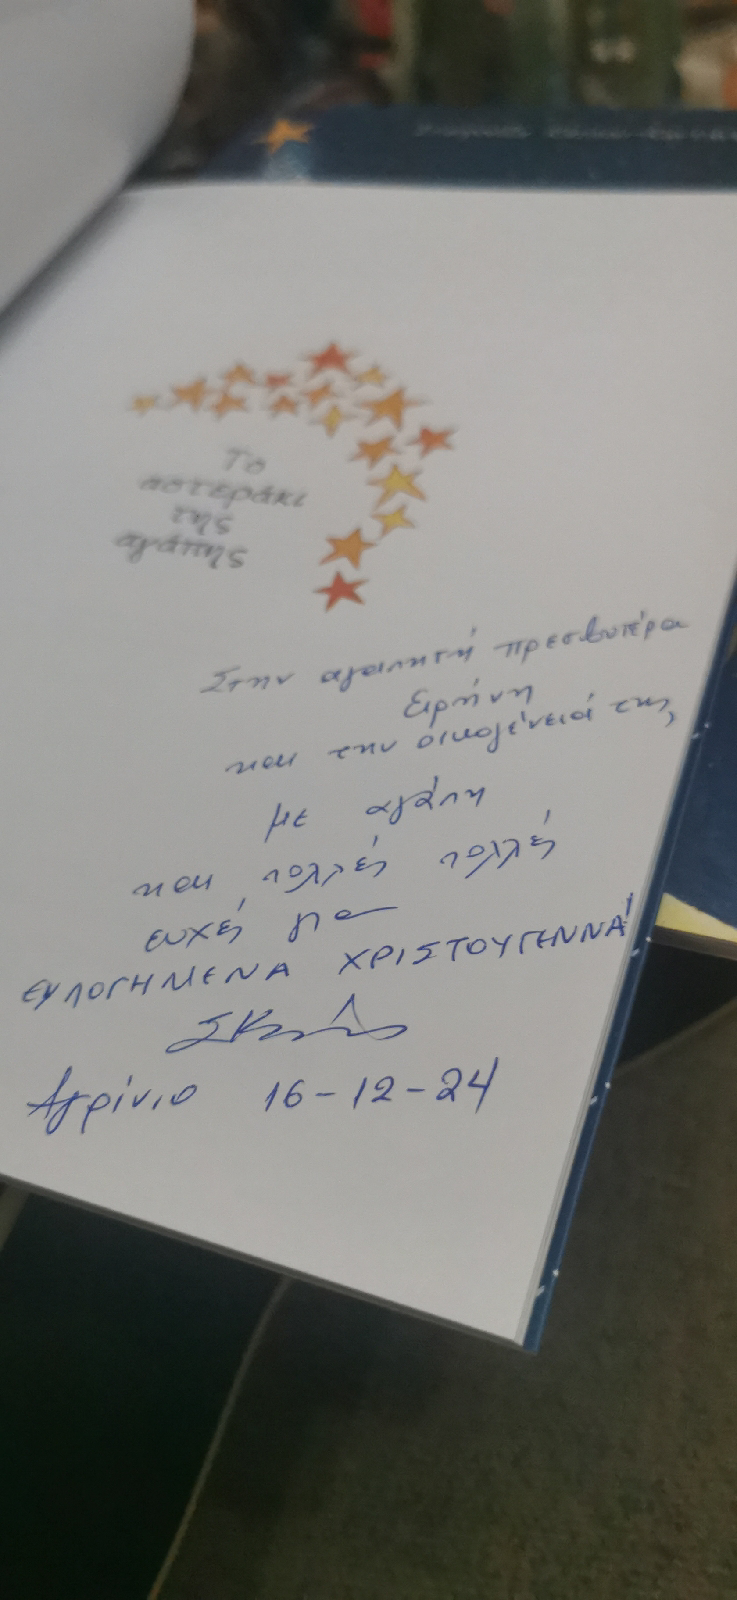 Το
αστεράκι
της
αγάπης
Στην αγαπητή πρεσβυτέρα
Ειρήνη
και την οικογένειά της,
με αγάπη
και πολλές πολλές
ευχές για
ΕΥΛΟΓΗΜΕΝΑ ΧΡΙΣΤΟΥΓΕΝΝΑ!
Αγρίνιο 16-12-24